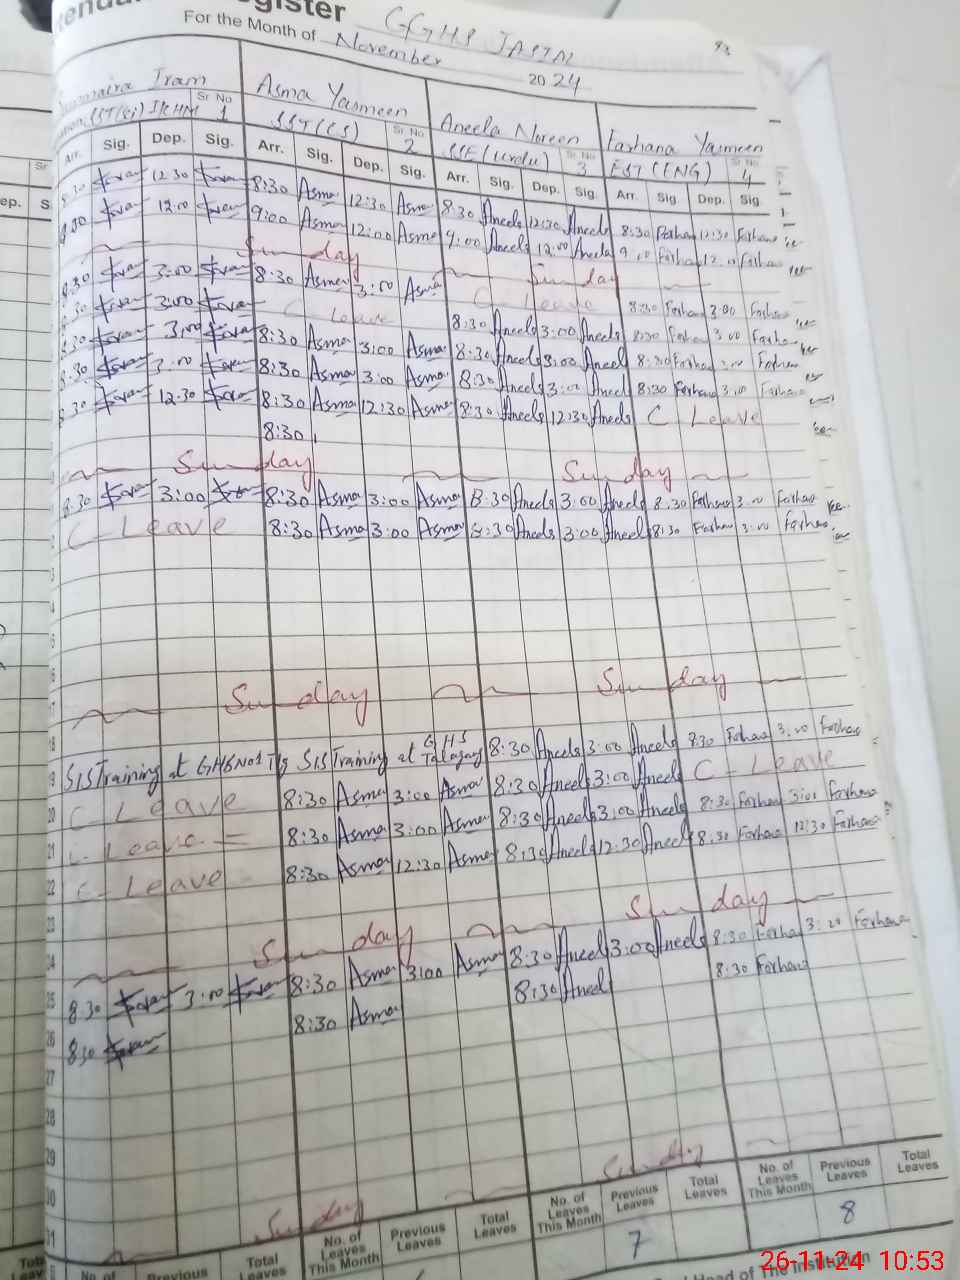 GGHS JASIAL
For the Month of November 2024
Iram Asma Yasmeen Aneela Noreen Farhana Yasmeen
Sr No 1 SST(CS) Sr No 2 SSE (Urdu) Sr No 3 EST (ENG) Sr No 4
Arr. Sig. Dep. Sig. Arr. Sig. Dep. Sig. Arr. Sig. Dep. Sig. Arr. Sig. Dep. Sig.
8:30 12:30 8:30 Asma 12:30 Asma 8:30 Aneela 12:30 Aneela 8:30 Farhana 12:30 Farhana
9:00 12:00 9:00 Asma 12:00 Asma 9:00 Aneela 12:00 Aneela 9:00 Farhana 12:00 Farhana
Sunday Sunday
8:30 3:00 8:30 Asma 3:00 Asma C Leave 8:30 Farhana 3:00 Farhana
8:30 3:00 C Leave 8:30 Aneela 3:00 Aneela 8:30 Farhana 3:00 Farhana
8:30 3:00 8:30 Asma 3:00 Asma 8:30 Aneela 3:00 Aneela 8:30 Farhana 3:00 Farhana
8:30 3:00 8:30 Asma 3:00 Asma 8:30 Aneela 3:00 Aneela 8:30 Farhana 3:00 Farhana
8:30 12:30 8:30 Asma 12:30 Asma 8:30 Aneela 12:30 Aneela C Leave
8:30
Sunday Sunday
8:30 3:00 8:30 Asma 3:00 Asma 8:30 Aneela 3:00 Aneela 8:30 Farhana 3:00 Farhana
C Leave 8:30 Asma 3:00 Asma 8:30 Aneela 3:00 Aneela 8:30 Farhana 3:00 Farhana
Sunday Sunday
18
19 SIS Training at GHS No 1 Tlg SIS Training at GHS Talagang 8:30 Aneela 3:00 Aneela 8:30 Farhana 3:00 Farhana
20 C Leave 8:30 Asma 3:00 Asma 8:30 Aneela 3:00 Aneela C - Leave
21 C- Leave 8:30 Asma 3:00 Asma 8:30 Aneela 3:00 Aneela 8:30 Farhana 3:00 Farhana
22 C - Leave 8:30 Asma 12:30 Asma 8:30 Aneela 12:30 Aneela 8:30 Farhana 12:30 Farhana
23
24 Sunday Sunday
25 8:30 3:00 8:30 Asma 3:00 Asma 8:30 Aneela 3:00 Aneela 8:30 Farhana 3:00 Farhana
26 8:30 8:30 Asma 8:30 Aneel 8:30 Farhana
27
28
29
30
31 Sunday Sunday
No. of Previous Leaves Total Leaves No. of Leaves This Month Previous Leaves Total Leaves No. of Leaves This Month Previous Leaves Total Leaves No. of Leaves This Month Previous Leaves Total Leaves
7 8
Head of The Institution
26-11-24 10:53